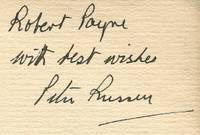 Robert Payne
with best wishes
Peter Russell